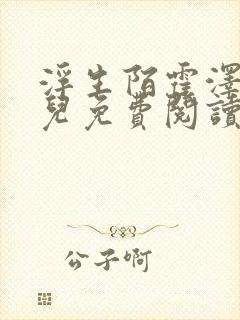 浮生陌霆澤
兒免費閱讀
公子啊